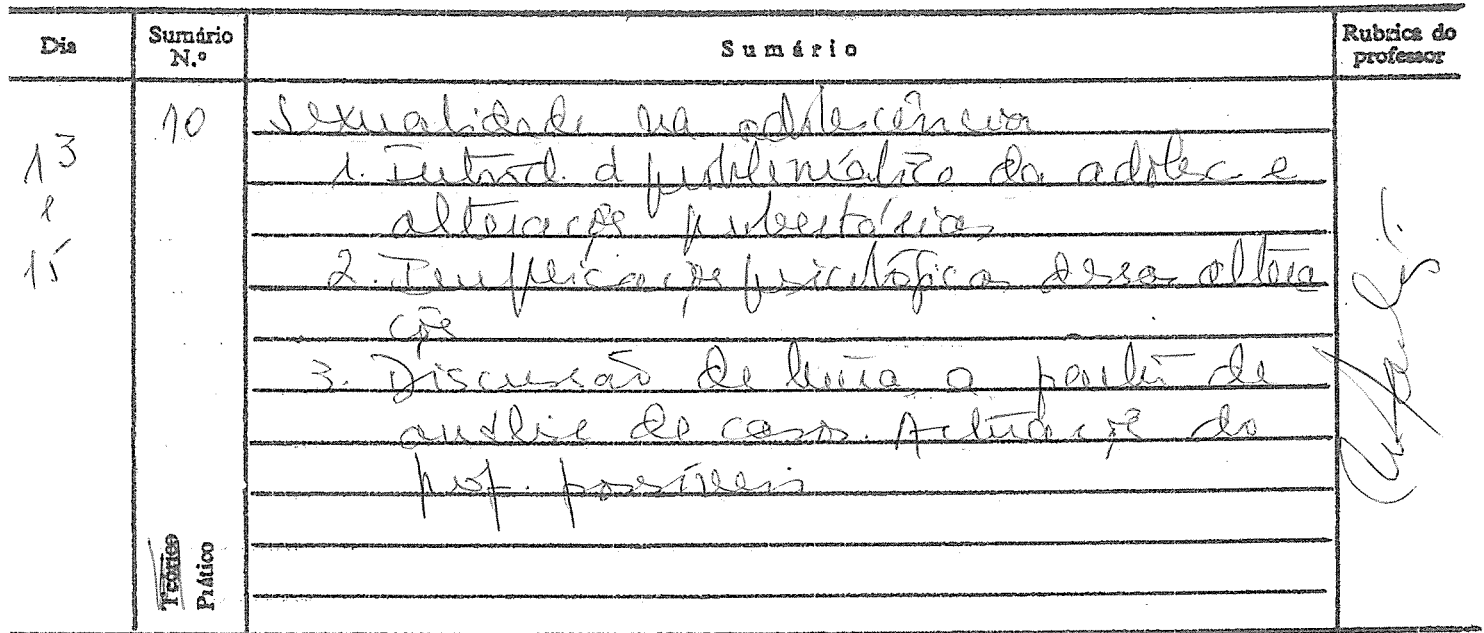 Dia Sumário N.º Sumário Rubrica do professor
10 Sexualidade na adolescência
13 1. Introd. à problemática da adolesc e
e alterações pubertárias
15 2. Implicações psicológicas dessas altera
ções
3. Discussão de tema a partir de
análise de casos. Actuações do
prof. possíveis
Teórico
Prático